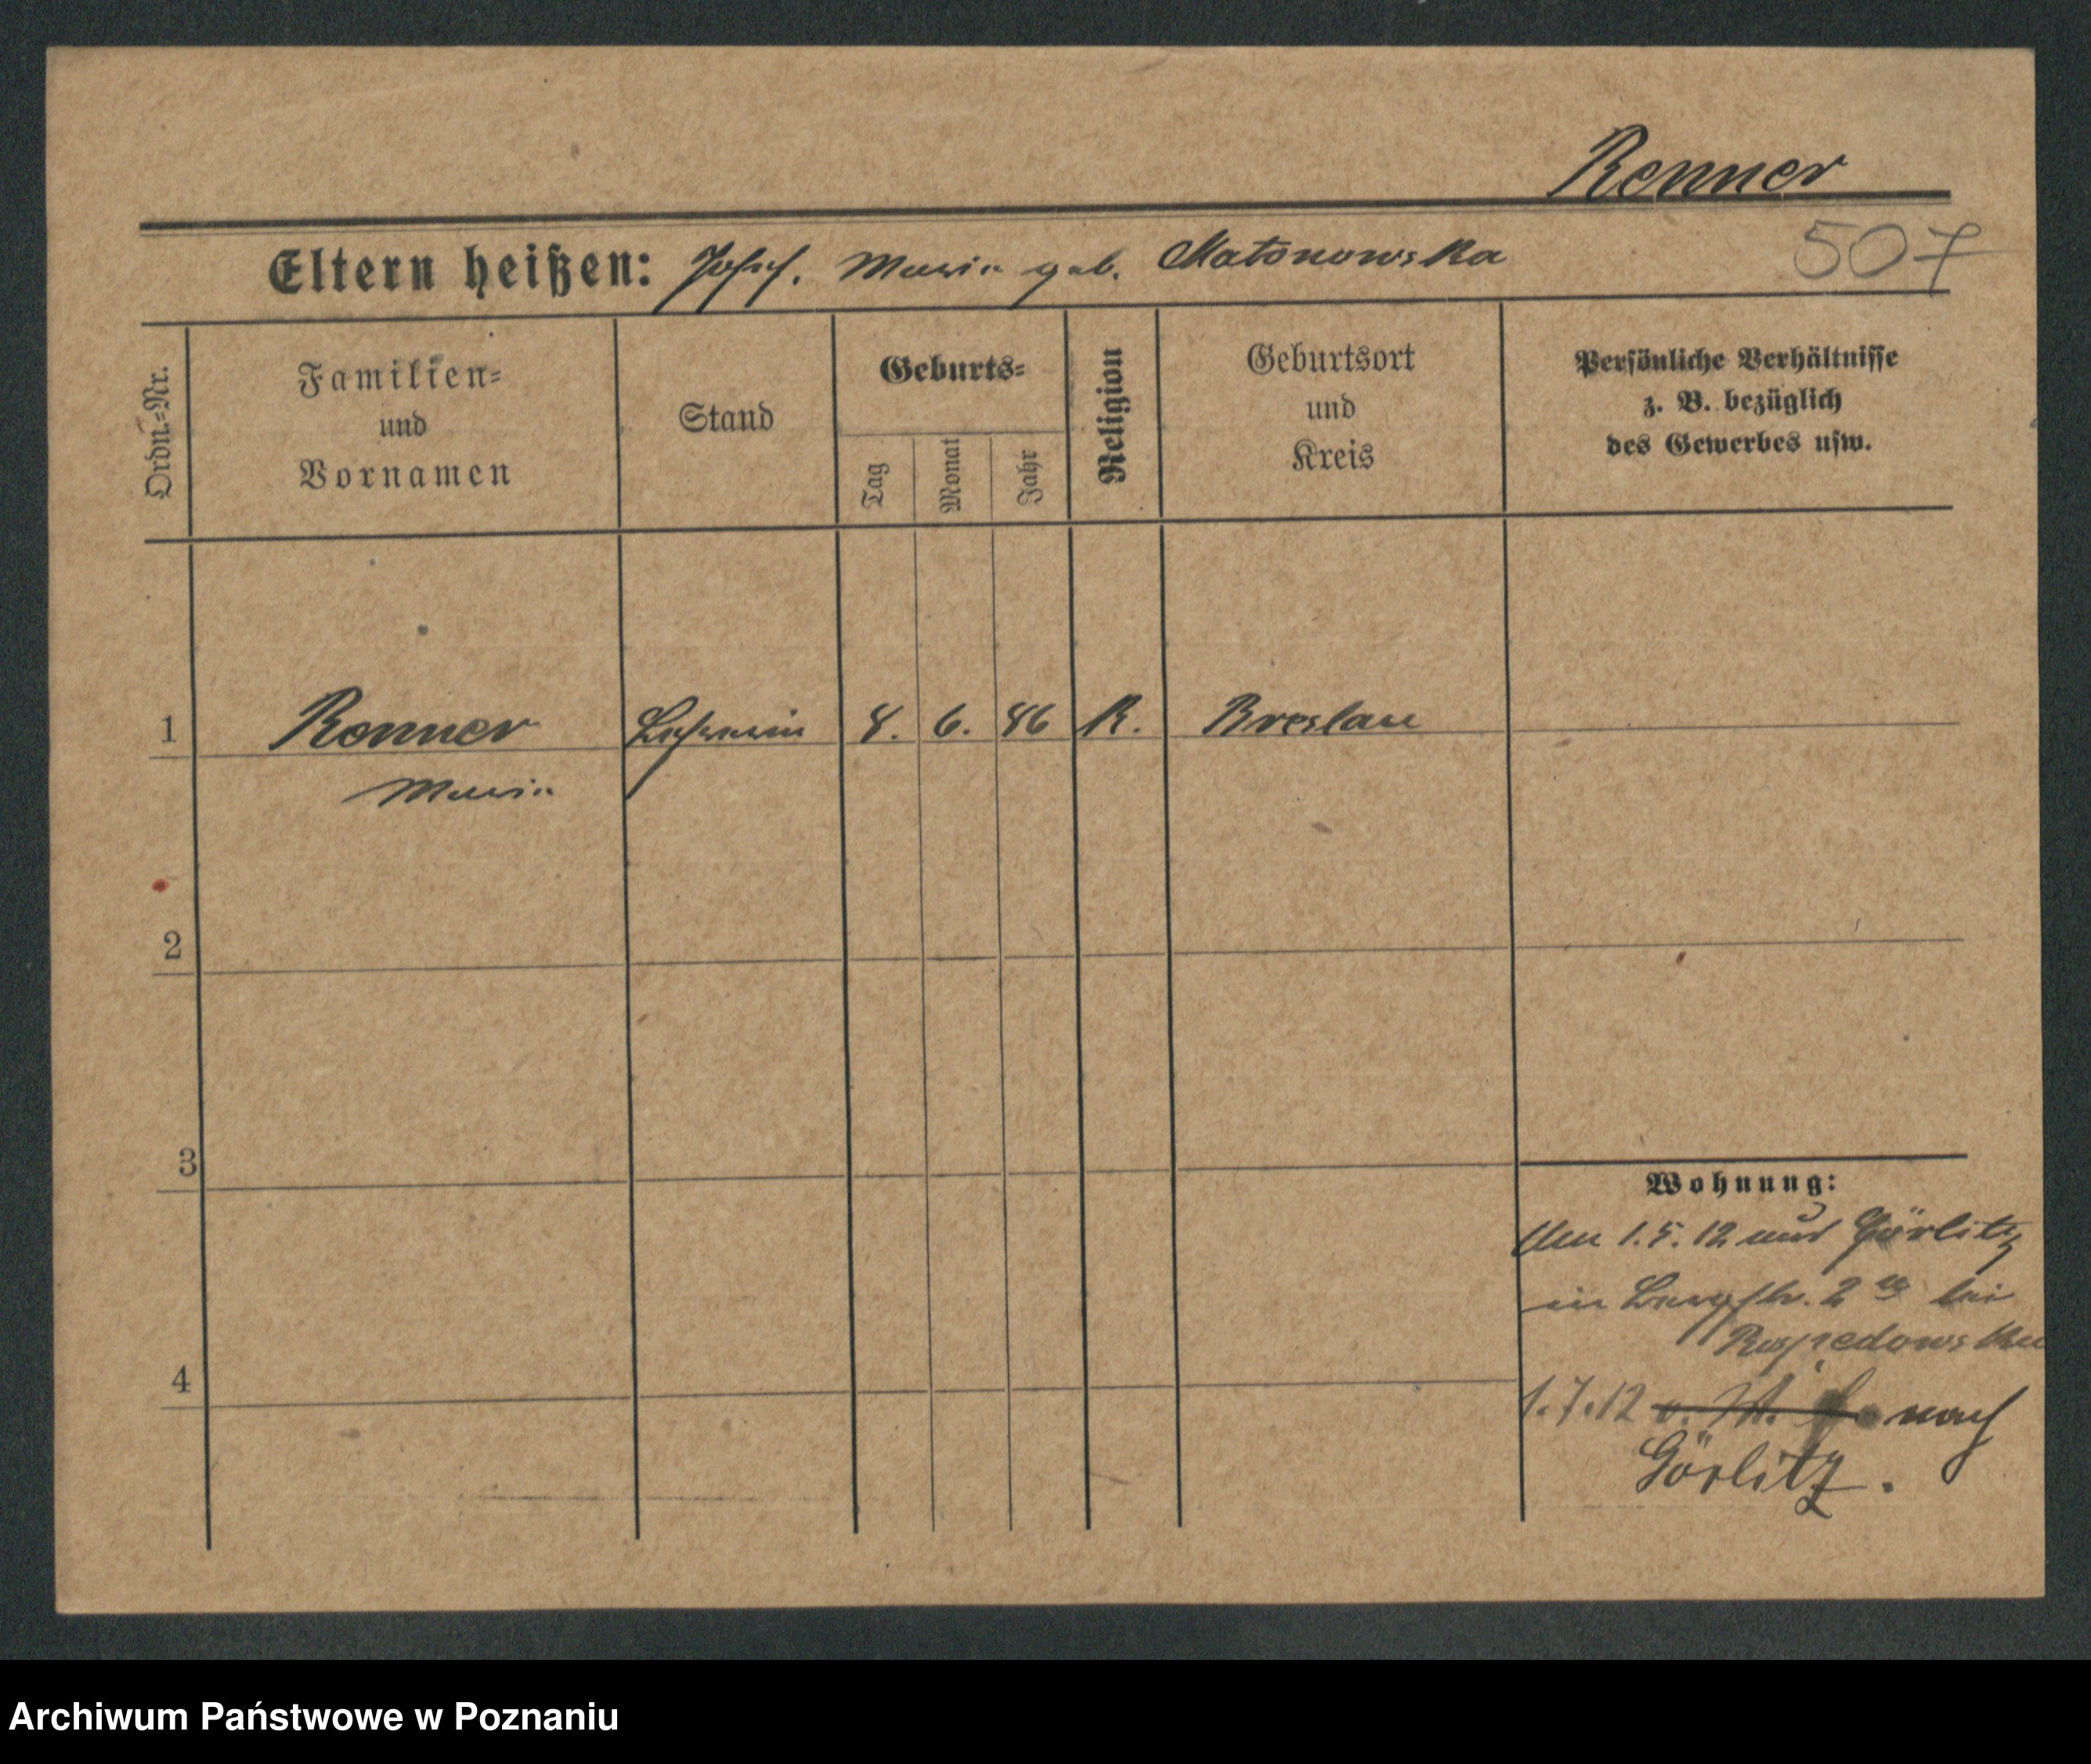 Renner
507
Eltern heißen: Josef. Maria geb. Matonowska
Ordn.-Nr.
Familien-
und
Vornamen
Stand
Geburts-
Tag
Monat
Jahr
Religion
Geburtsort
und
Kreis
Persönliche Verhältnisse
z. B. bezüglich
des Gewerbes usw.
1 Renner Lehrerin 8. 6. 86 K. Breslau
Maria
2
3
Wohnung:
1.5.12 aus Görlitz
in 2 bei
4
1.7.12 nach
Görlitz.
Archiwum Państwowe w Poznaniu